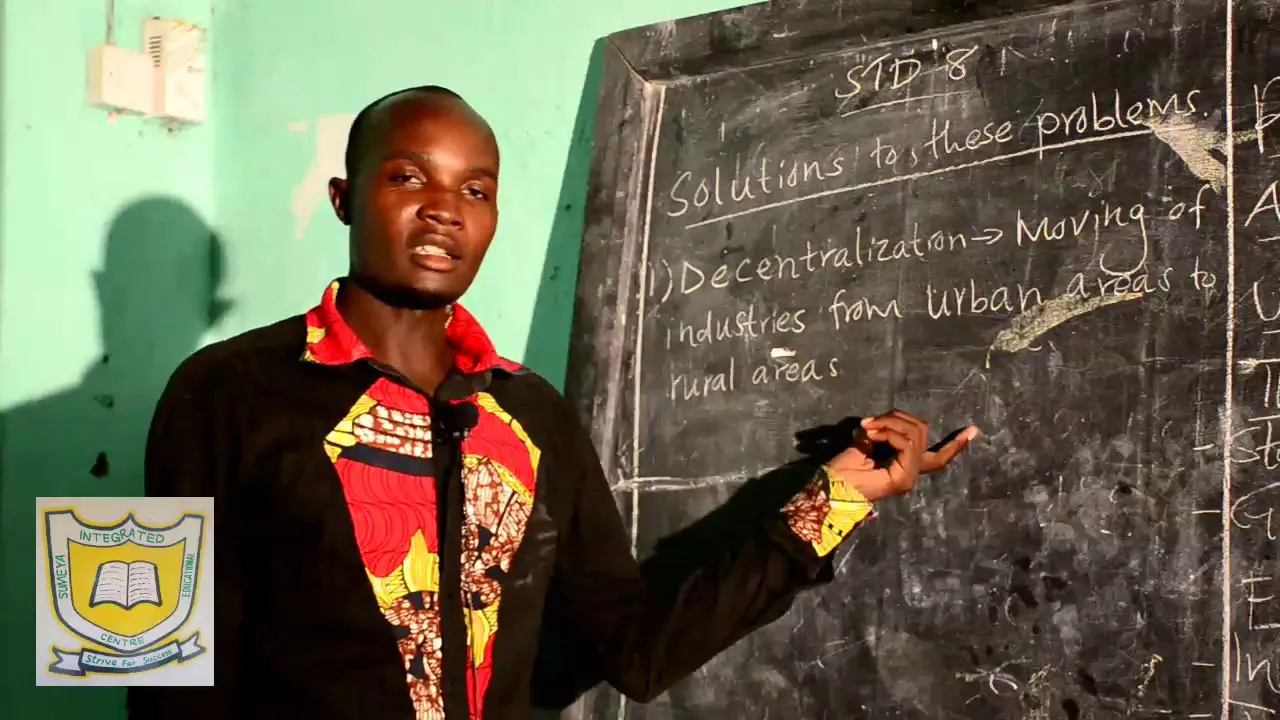 STD 8
Solutions to these problems.
1) Decentralization → Moving of
industries from urban areas to
rural areas
SUMEYA
INTEGRATED
EDUCATIONAL
CENTRE
Strive For Success